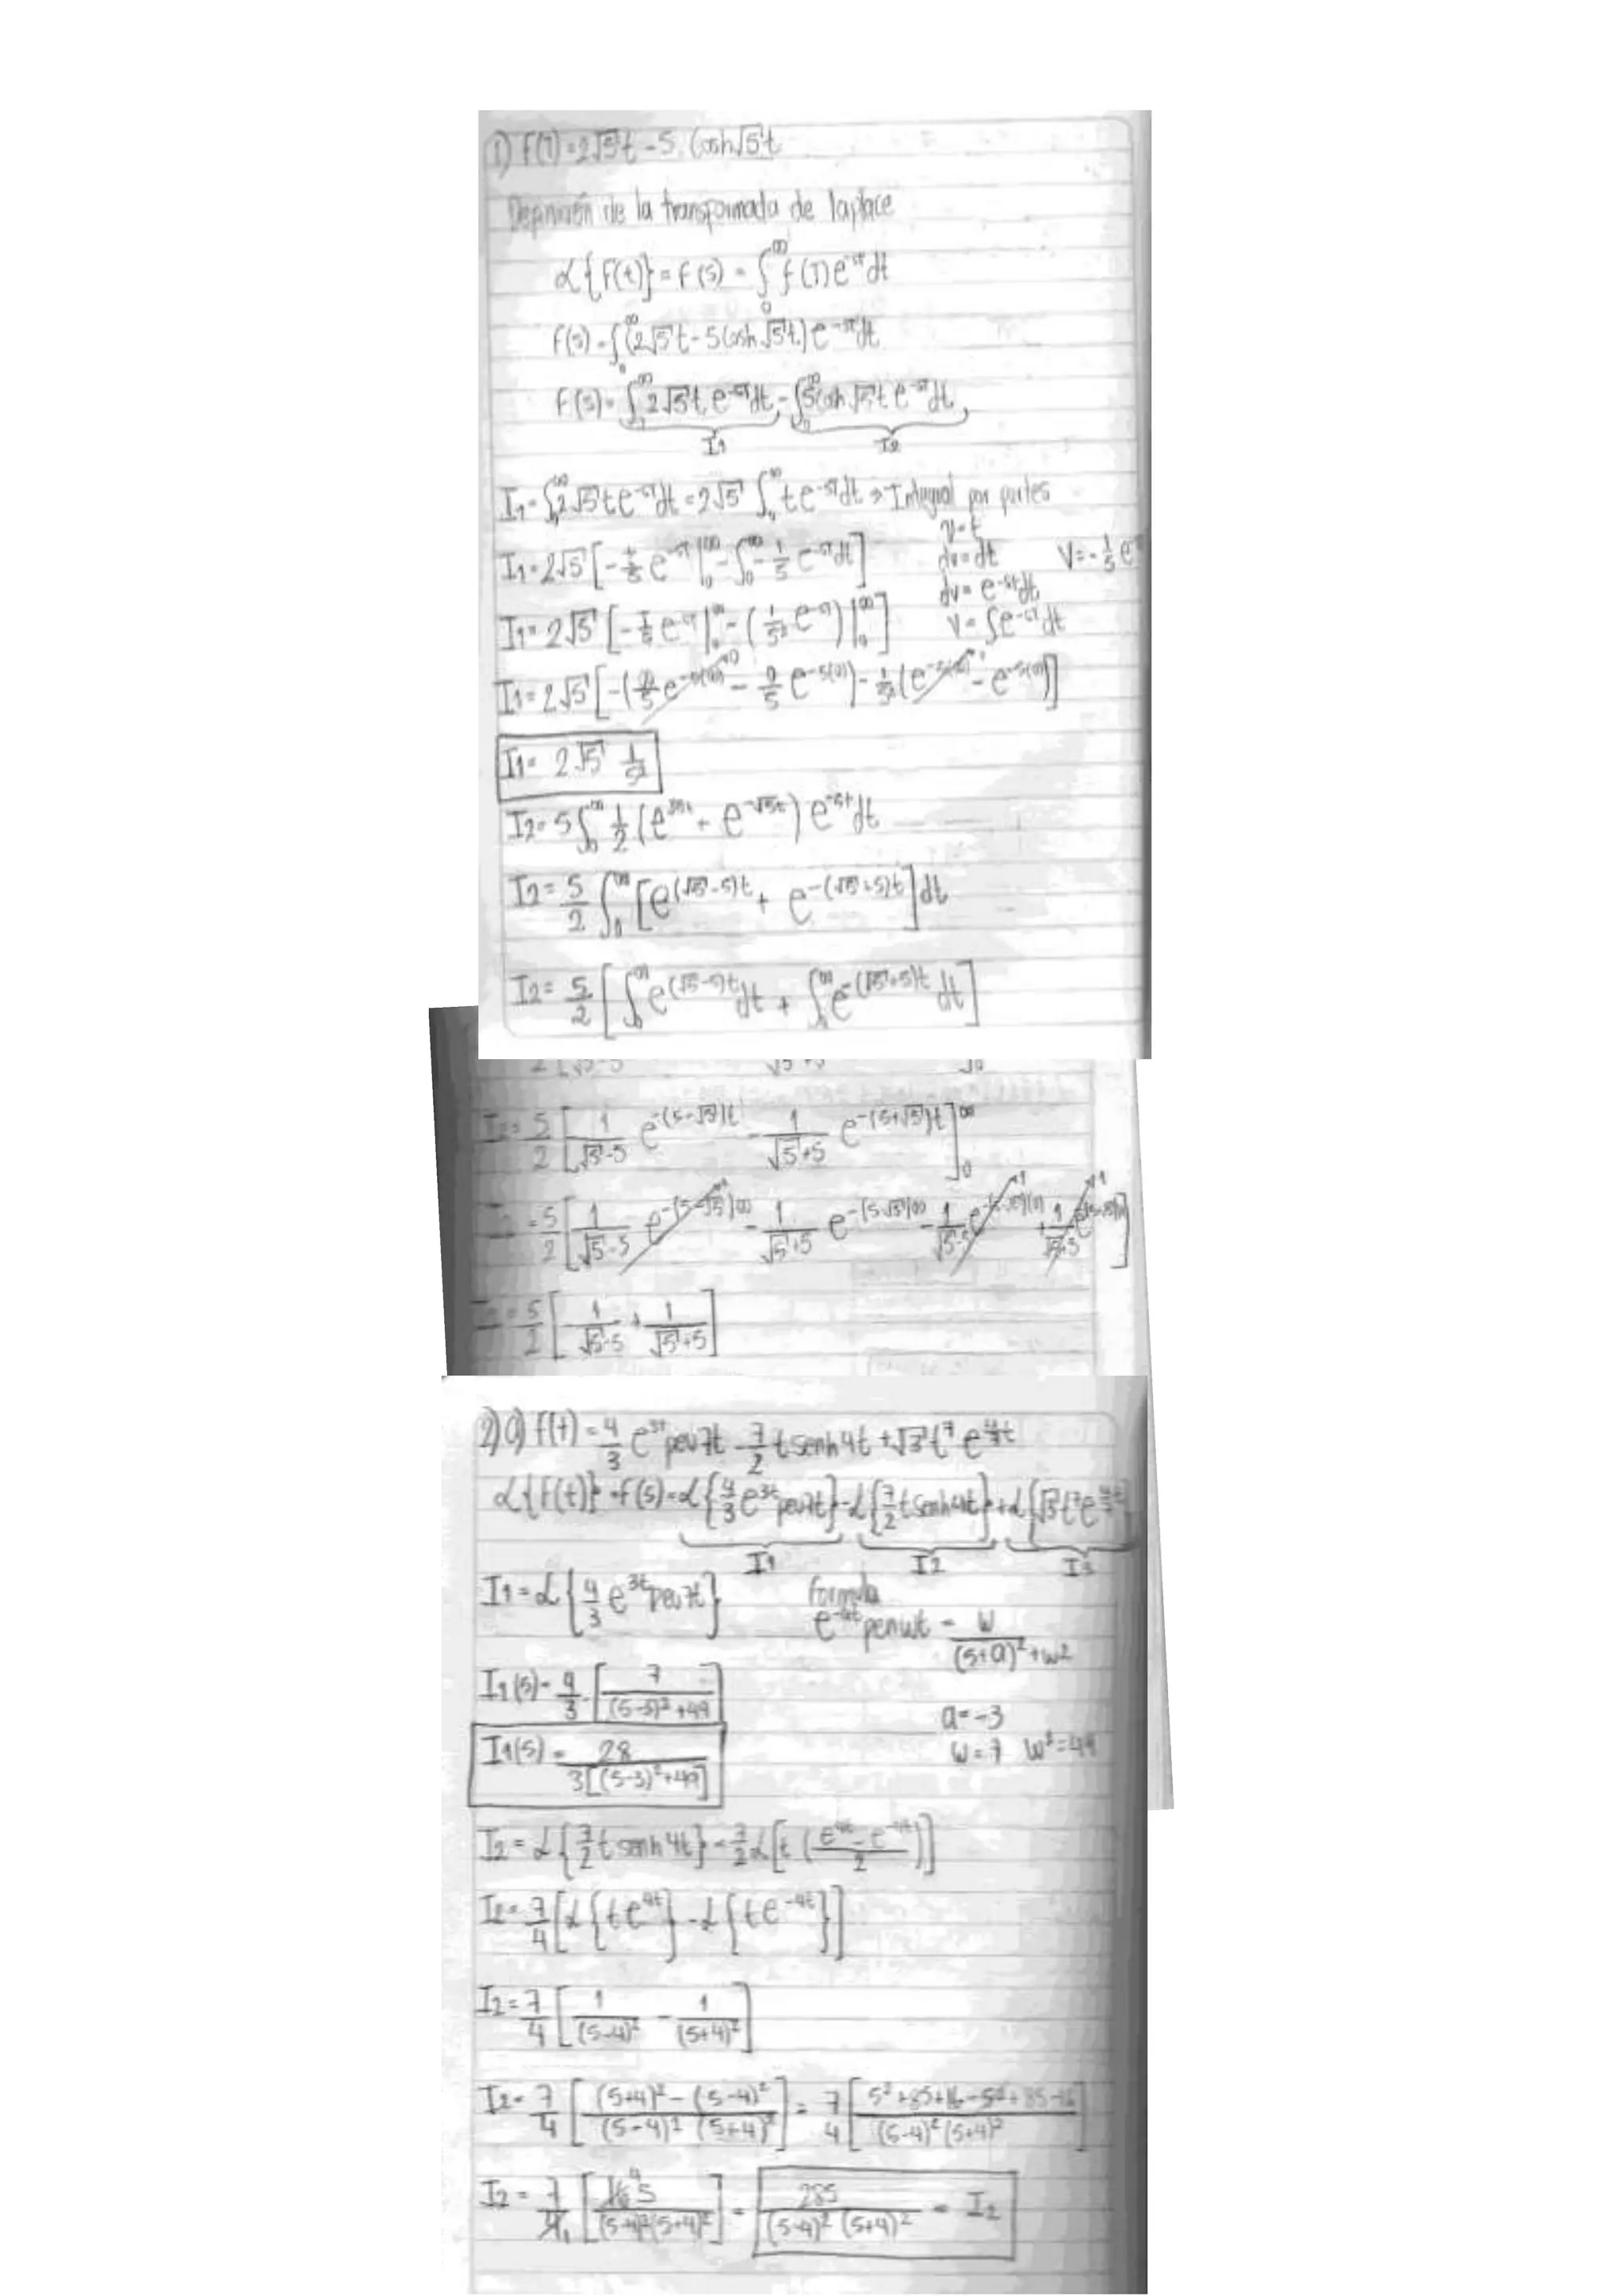 1) F(T) = 2√5 t - 5 Cosh√5 t
Definición de la transformada de laplace
ℒ{F(t)} = F(s) = ∫₀^∞ f(T) e^-sT dt
F(s) = ∫₀^∞ (2√5 t - 5 Cosh √5 t) e^-sT dt
F(s) = ∫₀^∞ 2√5 t e^-sT dt - ∫₀^∞ 5 Cosh √5 t e^-sT dt
I1 I2
I1 = ∫₀^∞ 2√5 t e^-sT dt = 2√5 ∫₀^∞ t e^-sT dt → Integral por partes
I1 = 2√5 [-t/s e^-sT |₀^∞ - ∫₀^∞ -1/s e^-sT dt]
I1 = 2√5 [-t/s e^-sT |₀^∞ - (1/s² e^-sT) |₀^∞]
u = t
du = dt V = -1/s e
dv = e^-st dt
V = ∫e^-st dt
I1 = 2√5 [-(∞/s e^-s(∞) - 0/s e^-s(0)) - 1/s² (e^-s(∞) - e^-s(0))]
I1 = 2√5 1/s²
I2 = 5 ∫₀^∞ 1/2 (e^√5t + e^-√5t) e^-st dt
I2 = 5/2 ∫₀^∞ [e^(√5-s)t + e^-(√5+s)t] dt
I2 = 5/2 [∫₀^∞ e^(√5-s)t dt + ∫₀^∞ e^-(√5+s)t dt]
I2 = 5/2 [1/(√5-s) e^-(s-√5)t - 1/(√5+s) e^-(s+√5)t]₀^∞
= 5/2 [1/(√5-s) e^-(s-√5)∞ - 1/(√5+s) e^-(s√5)∞ - 1/(√5-s) e^-(s-√5)(0) + 1/(√5+s) e^-(s+√5)(0)]
= 5/2 [1/(√5-s) + 1/(√5+s)]
2) a) f(t) = 4/3 e^3t sen7t - 7/2 t senh 4t + √3 t^7 e^(4/3)t
ℒ{f(t)} = F(s) = ℒ{4/3 e^3t sen7t} - ℒ{7/2 t senh4t} + ℒ{√3 t^7 e^(4/3)t}
I1 I2 I3
I1 = ℒ{4/3 e^3t sen7t}
formula
e^-at senwt = w/((s+a)²+w2)
I1(s) = 4/3 · [7/((s-3)²+49)]
a = -3
w = 7 w² = 49
I1(s) = 28/(3[(s-3)²+49])
I2 = ℒ{7/2 t senh 4t} = 7/2 ℒ[t ((e^4t - e^-4t)/2)]
I2 = 7/4 [ℒ{t e^4t} - ℒ{t e^-4t}]
I2 = 7/4 [1/(s-4)² - 1/(s+4)²]
I2 = 7/4 [((s+4)² - (s-4)²)/((s-4)² (s+4)²)] = 7/4 [(s²+8s+16-s²+8s-16)/((s-4)² (s+4)²)]
I2 = 7/4 1 [16 4 s/((s-4)² (s+4)²)] = 28s/((s-4)² (s+4)²) = I2